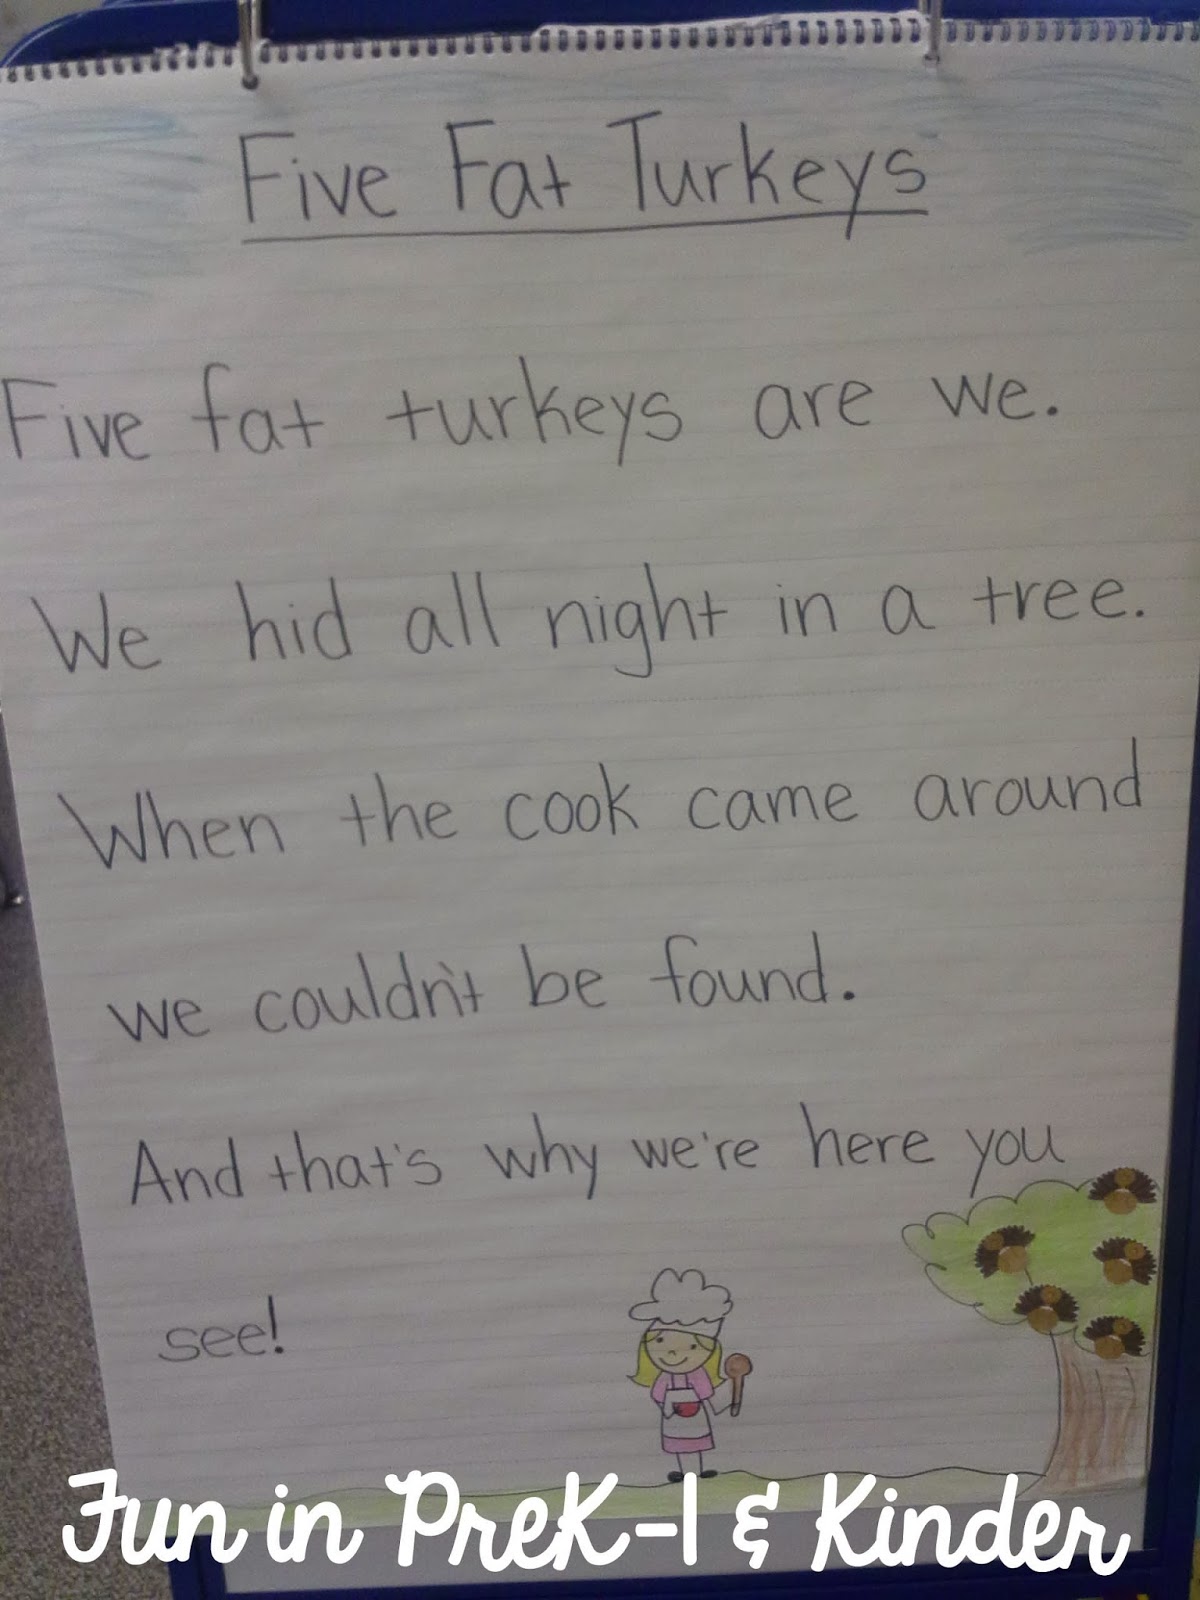 Five Fat Turkeys
Five fat turkeys are we.
We hid all night in a tree.
When the cook came around
we couldn't be found.
And that's why we're here you
see!
Fun in PreK-1 & Kinder